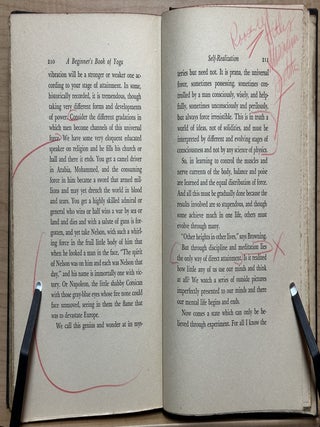 210 A Beginner's Book of Yoga
vibration will be a stronger or weaker one ac-
cording to your stage of attainment. In some,
historically recorded, it is tremendous, though
taking very different forms and developments
of power. Consider the different gradations in
which men become channels of this universal
force. We have some very eloquent educated
speaker on religion and he fills his church or
hall and there it ends. You get a camel driver
in Arabia, Mohammed, and the consuming
force in him became a sword that armed mil-
lions and may yet drench the world in blood
and tears. You get a highly skilled admiral or
general who wins or half wins a war by sea or
land and dies and with a salute of guns is for-
gotten, and yet take Nelson, with such a whirl-
ing force in the frail little body of him that
when he looked a man in the face, "The spirit
of Nelson was on him and each was Nelson that
day," and his name is immortal one with vic-
tory. Or Napoleon, the little shabby Corsican
with those gray-blue eyes whose fire none could
face unmoved, seeing in them the flame that
was to devastate Europe.
We call this genius and wonder at its mys-
Self-Realization 211
teries but need not. It is prana, the universal
force, sometimes possessing, sometimes con-
trolled by a man consciously, wisely, and help-
fully, sometimes unconsciously and perilously,
but always force irresistible. This is in truth a
world of ideas, not of solidities, and must be
interpreted by different and evolving stages of
consciousness and not by any science of physics.
So, in learning to control the muscles and
nerve currents of the body, balance and poise
are learned and the equal distribution of force.
And all this must be graduated because the
results involved are so stupendous, and though
some achieve much in one life, others must
evolve through many.
"Other heights in other lives," says Browning.
But through discipline and meditation lies
the only way of direct attainment. Is it realised
how little any of us use our minds and think
at all? We watch a series of outside pictures
imperfectly presented to our minds and there
our mental life begins and ends.
Now comes a state which can only be be-
lieved through experiment. For all I know the